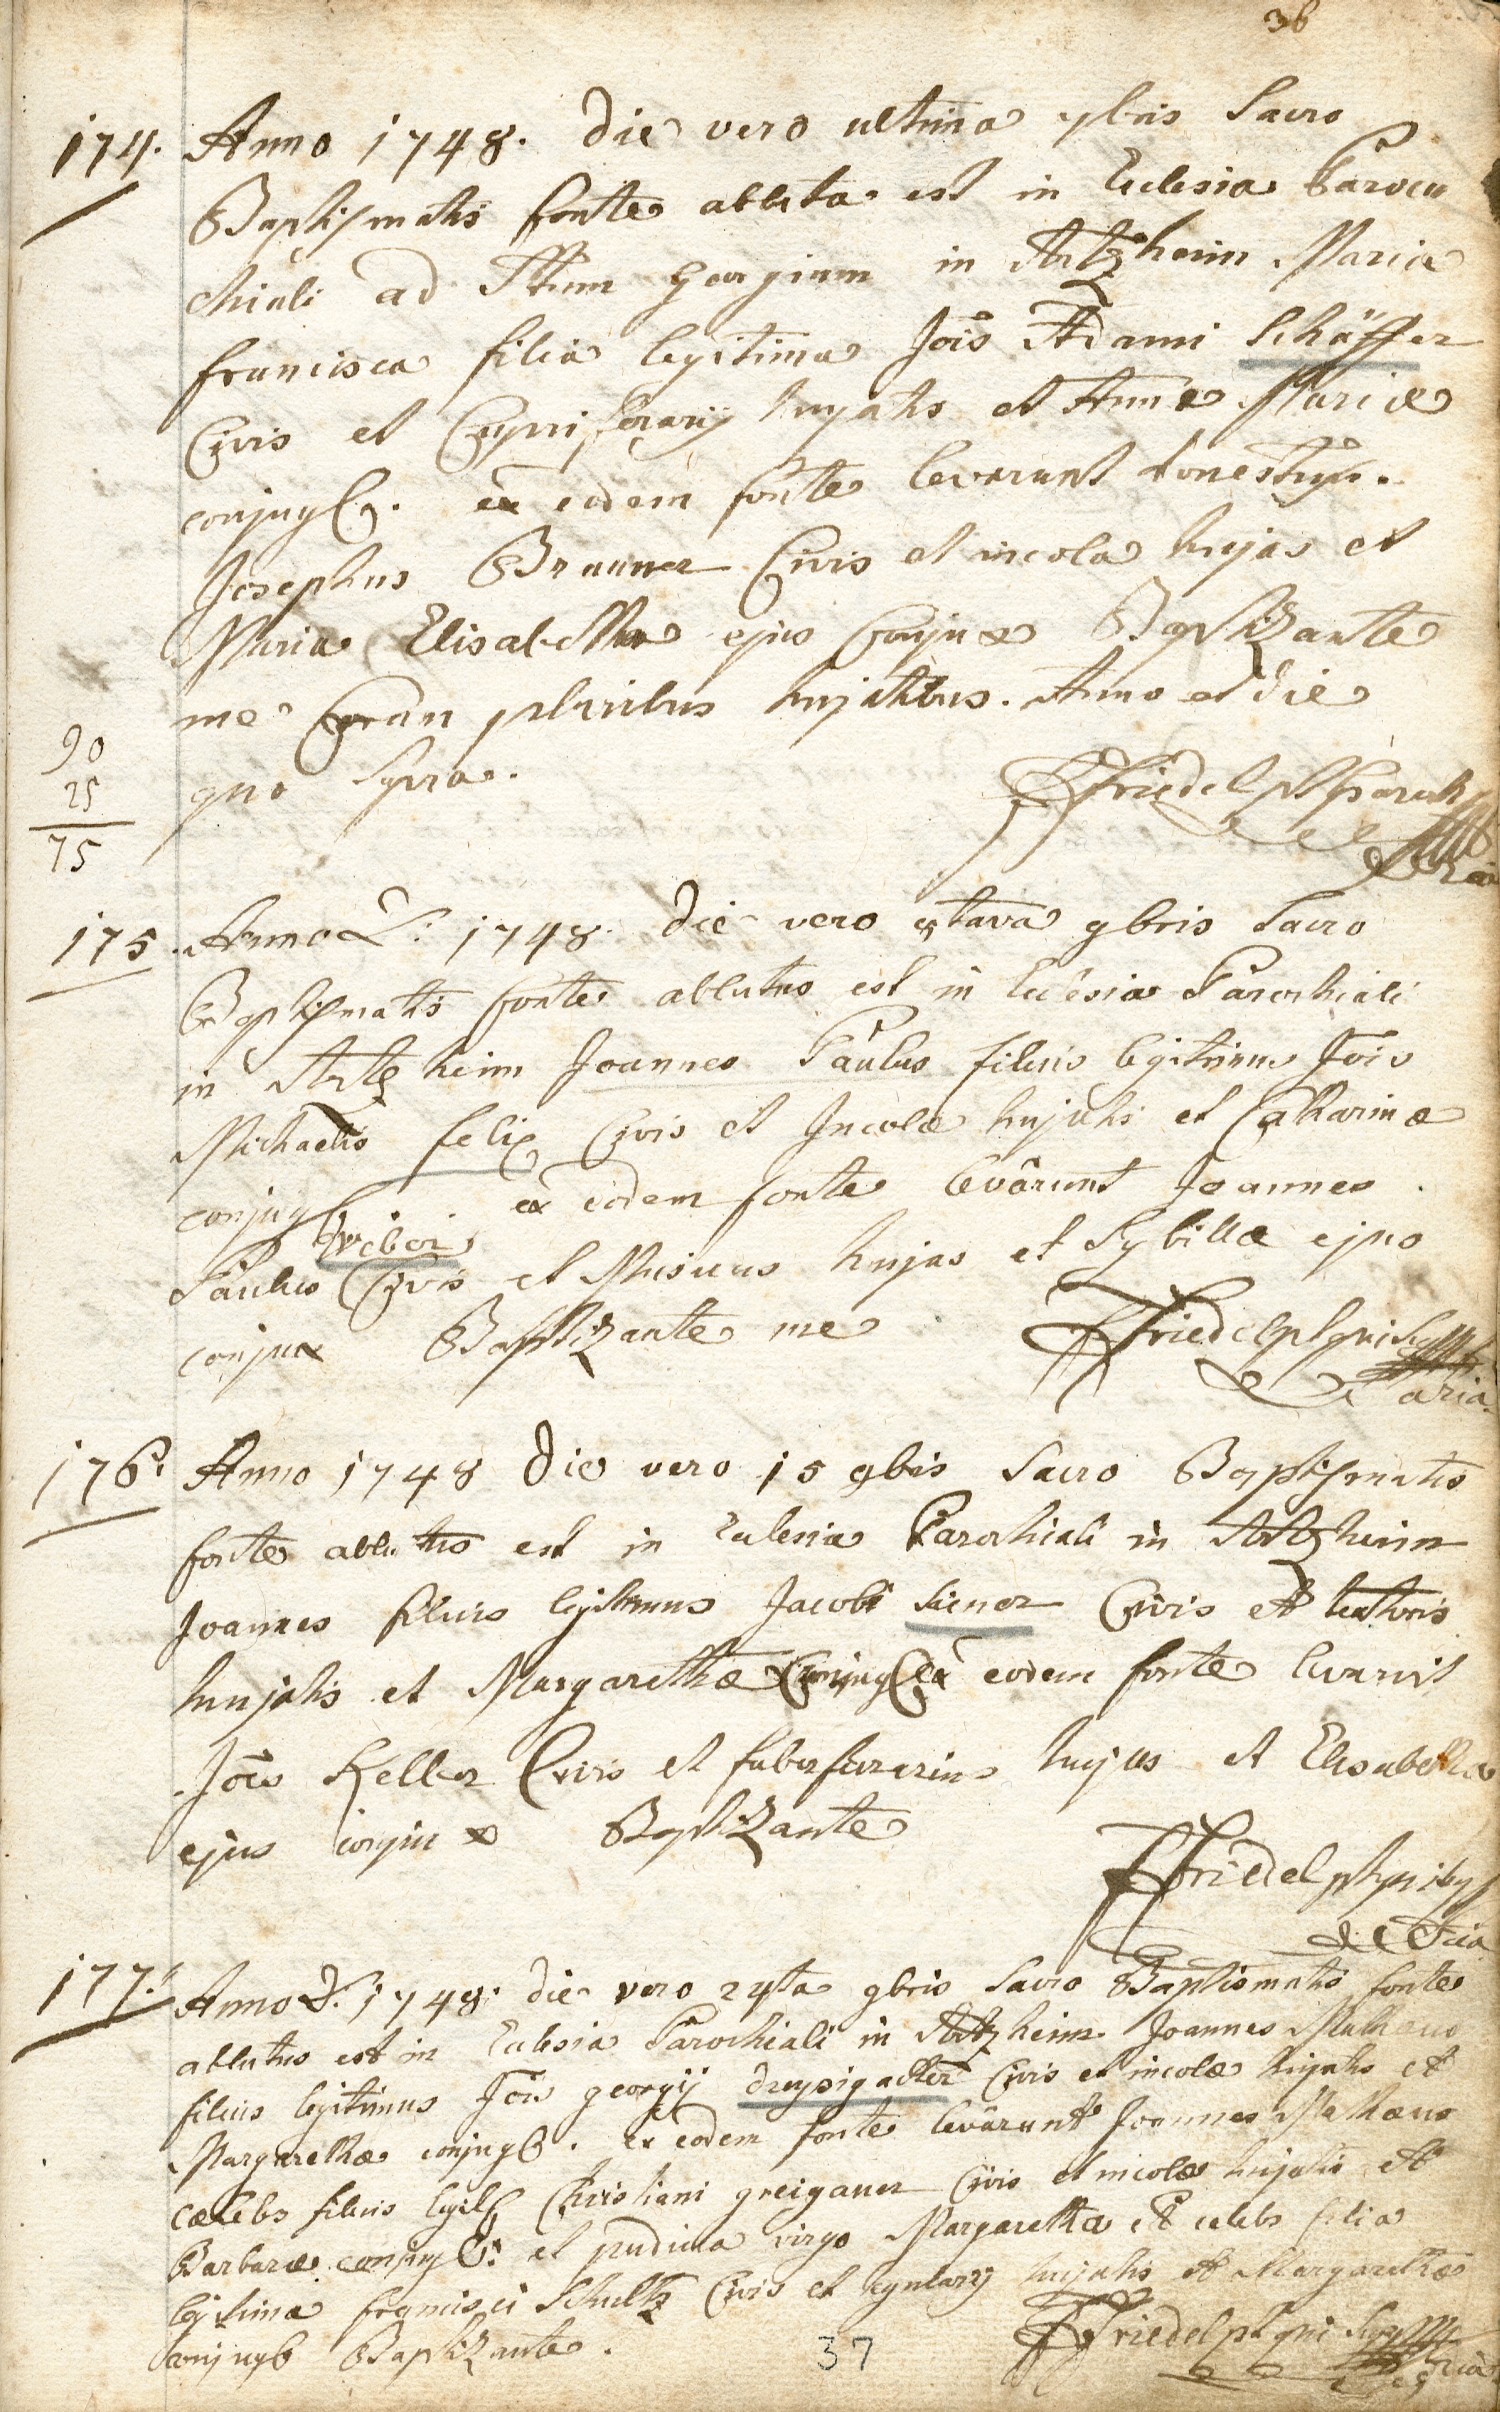 36
174. Anno 1748. Die vero ultima 7bris Sacro
Baptismatis fonte abluta est in Eclesia Paro
chiali ad Stum georgium in Artzheim Maria
francisca filia legitima Jois Adami Schäffer
Civis et hujatis et Annæ Mariæ
conjug. ex eodem fonte levarunt
Josephus Brunner Civis et incola hujas et
Maria Elisabetha ejus Conjux Baptizante
me Coram pluribus hujatibus. Anno et die
quo Supra.
Friedel
90
25
75
175. Anno D. 1748. die vero 8tava 9bris Sacro
Baptismatis fonte ablutus est in Eclesia Parochiali
in Artzheim Joannes Paulus filius legitimus Jois
Michaelis felix Civis et Incolæ hujatis et Catharinæ
conjug. ex eodem fonte levârunt Joannes
Weber
Paulus Civis et Musicus hujas et Sybillæ ejus
conjux Baptizante me Friedel
aria
176. Anno 1748 Die vero 15 9bris Sacro Baptismatis
fonte ablutus est in Eclesia Parochiali in Artzheim
Joannes filius legitimus Jacobi Siener Civis et textoris
hujatis et Margarethæ Conjug ex eodem fonte levavit
Jois Keller Civis et faber ferrarius hujas et Elisabetha
ejus conjux Baptizante
Friedel
177. Anno D. 1748. die vero 24ta 9bris Sacro Baptismatis fonte
ablutus est in Eclesia Parochiali in Artzheim Joannes Mathæus
filius legitimus Jois georgij dreysigacker Civis et incolæ hujatis et
Margarethæ conjug. ex eodem fonte levârunt Joannes Mathæus
cælebs filius legit Christiani greigauer Civis et incolæ hujatis et
Barbaræ conjug. et pudica virgo Margaretha et celebs filia
legitima francisci Schultz Civis et hujatis et Margarethæ
conjug Baptizante. Friedel
37